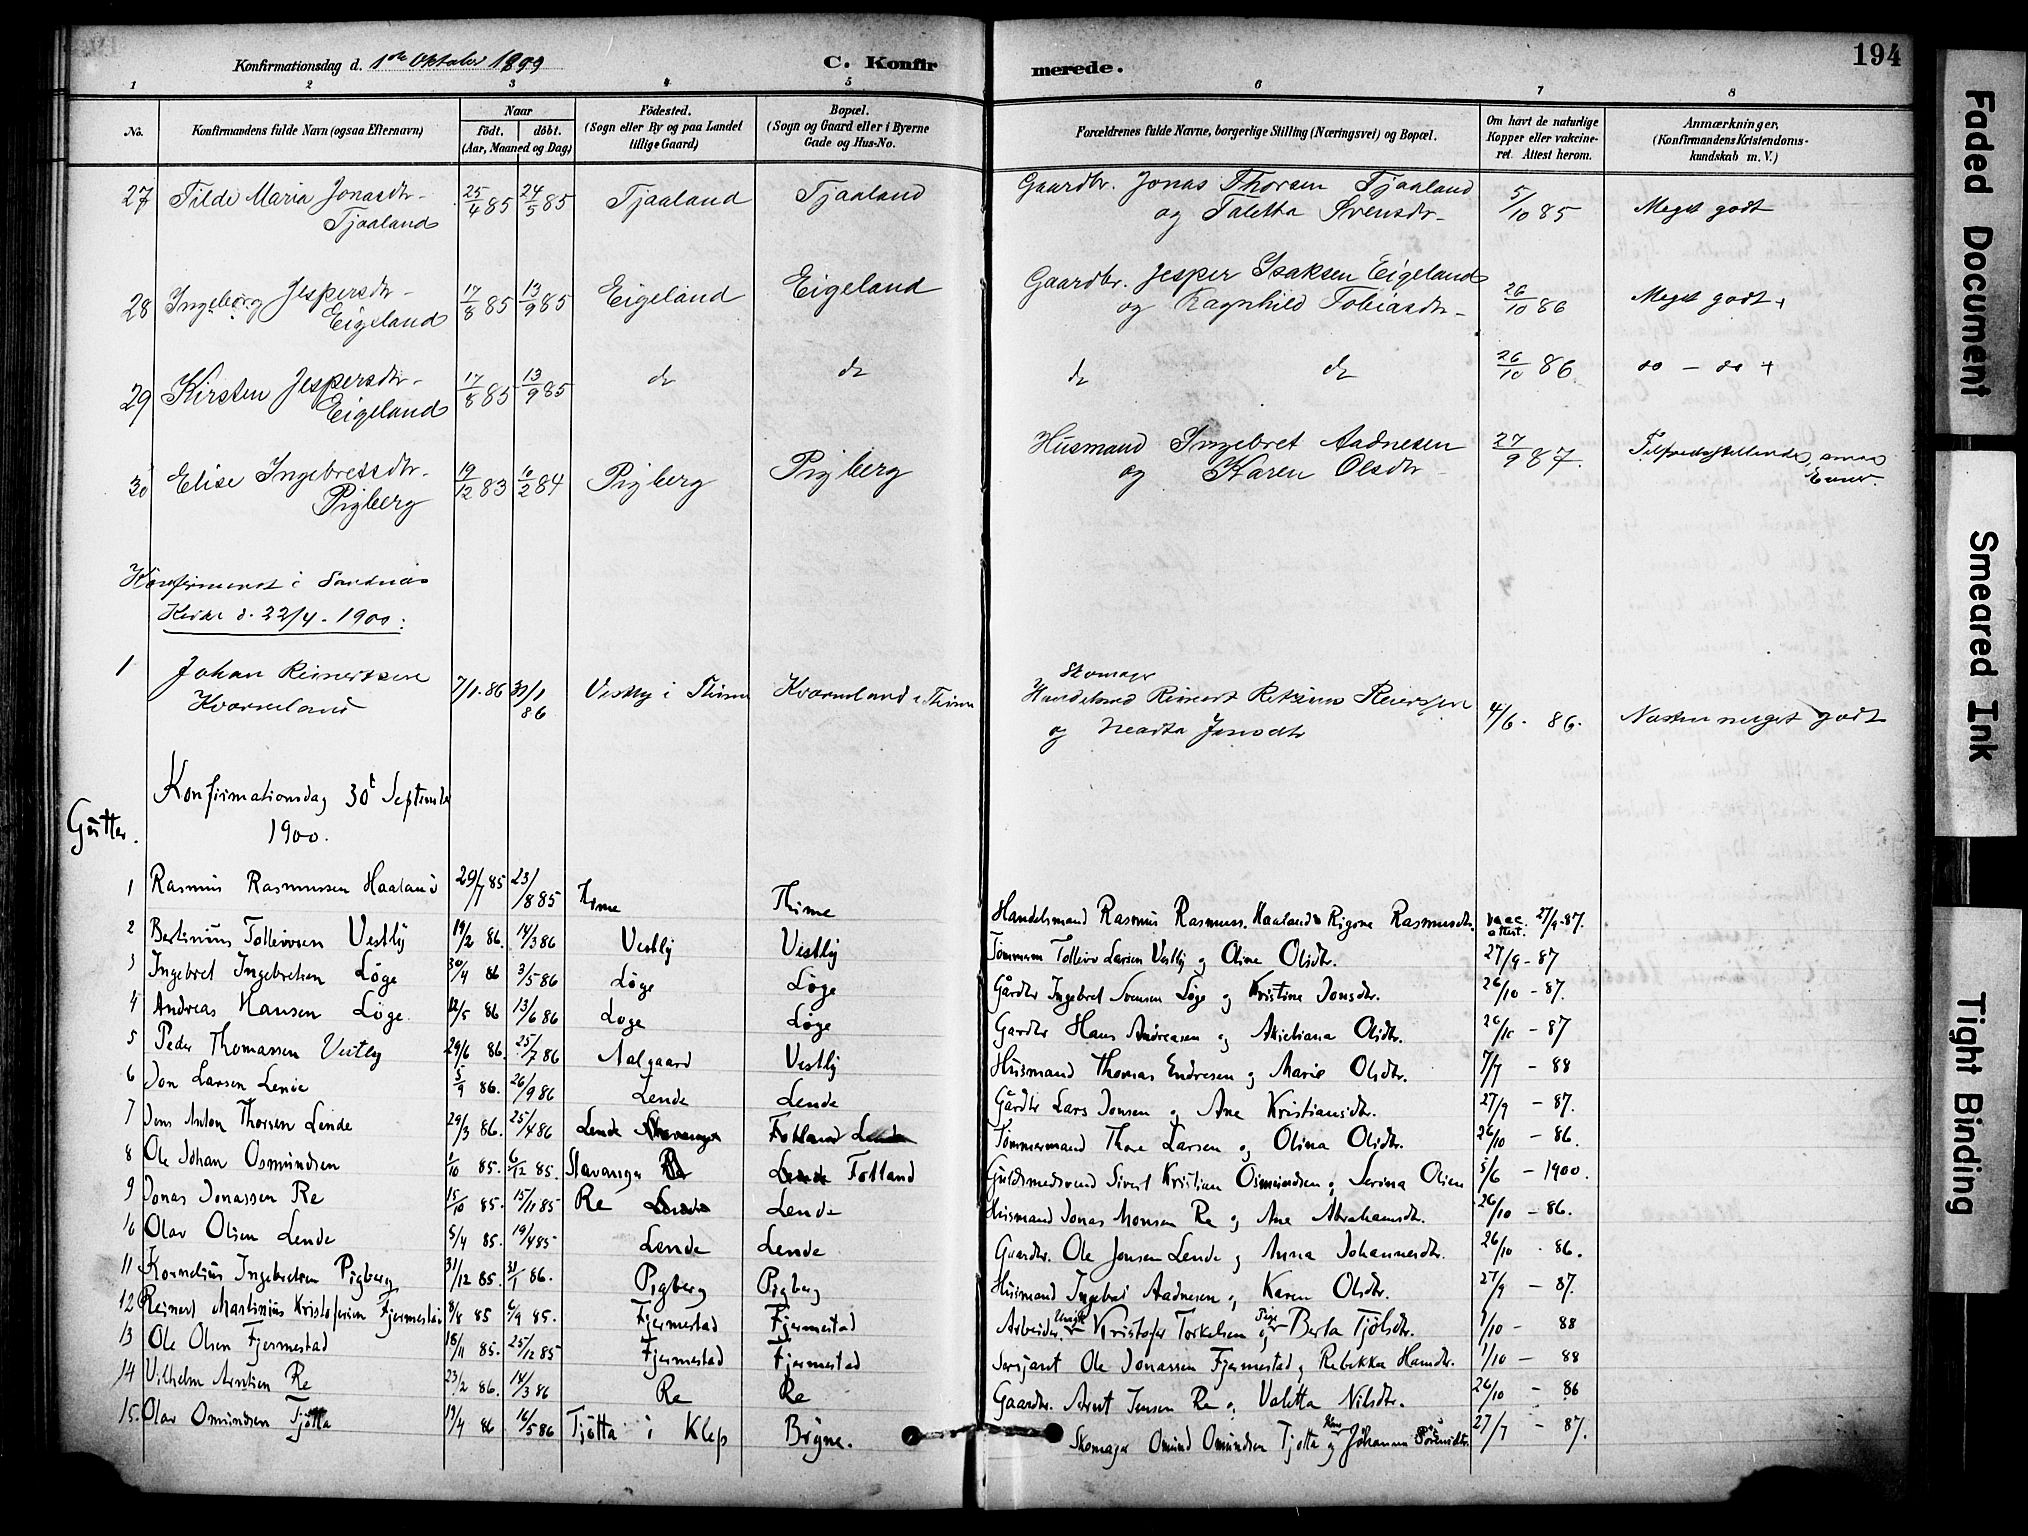 Konfirmationsdag d. 1ste Oktober 1899
C. Konfirmerede.
194
1 2 3 4 5 6 7 8
No. Konfirmandens fulde Navn (ogsaa Efternavn) Naar födt. döbt. (Aar, Maaned og Dag) Födested. (Sogn eller By og paa Landet tillige Gaard) Bopæl. (Sogn og Gaard eller i Byerne Gade og Hus-No. Forældrenes fulde Navne, borgerlige Stilling (Næringsvei) og Bopæl. Om havt de naturlige Kopper eller vakcineret. Attest herom. Anmærkninger, (Konfirmandens Kristendomskundskab m. V.)
27 Tilde Maria Jonasdtr. Tjaaland 25/4 85 24/5 85 Tjaaland Tjaaland Gaardbr. Jonas Thorsen Tjaaland og Taletta Svensdtr. 5/10 85 Meget godt
28 Ingeborg Jespersdtr. Eigeland 17/8 85 13/9 85 Eigeland Eigeland Gaardbr. Jesper Isaksen Eigeland og Ragnhild Tobiasdtr. 26/10 86 Meget godt +
29 Kirsten Jespersdtr. Eigeland 17/8 85 13/9 85 do do do do 26/10 86 do - do +
30 Elise Ingebretsdtr. Pigberg 19/12 83 10/2 84 Pigberg Pigberg Husmand Ingebret Aadnesen og Karen Olsdtr. 27/9 87. Tilfredsstillende, smaa Evner.
Konfirmeret i Sandnæs
Kirke d. 22/4. 1900:
1 Johan Reinertsen Kværneland 7/1. 86 31/1 86 Vestly i Thime Kværneland i Thime Skomager Handelsmd Reinert Reiersen og Jonsdtr 4/6. 86. Næsten meget godt
Konfirmationsdag 30t September
1900.
Gutter.
1 Rasmus Rasmussen Haaland 29/7 85 23/8 85 Thime Thime Handelsmand Rasmus Rasmuss. Haaland & Rigone Rasmusdtr. vacc. attest. 27/9-87.
2 Bertinius Tollevsen Vestly 19/2 86. 14/3 86 Vestly Vestly Tømmerm Tolleiv Larsen Vestly og Oline Olsdtr. 27/9-87
3 Ingebret Ingebretsen Løge 30/4 86 3/5 86 Løge Løge Gårdbr Ingebret Svensen Løge og Kristine Jonsdtr. 26/10 - 87.
4 Andreas Hansen Løge. 12/5 86 13/6 86 Løge Løge Gardbr Hans Andreasen og Olsdtr. 26/10 - 87
5 Peder Thomassen Vestly 29/6 86. 25/7 86 Aalgaard Vestly Husmand Thomas Endresen og Marie Olsdtr. 7/7 - 88
6 Jon Larsen Lende 5/9 86. 26/9 86 Lende Lende Gårdbr Lars Jonsen og Ane Kristiansdtr. 27/9 - 87.
7 Jens Anton Thorsen Lende 29/3 86. 25/4 86 Lende Stavanger Fotland Lende Tømmermand Thore Larsen og Olina Olsdtr. 26/10 - 86.
8 Ole Johan Osmundsen 1/10 85. 6/12 85. Stavanger Re Lende Fotland Guldsmedsvend Sivert Kristian Osmundsen og Serina Olsen 5/6 - 1900.
9 Jonas Jonassen Re 15/10 85. 15/11 85 Re Lende Lende Husmand Jonas Monsen Re og Ane Abrahamsdtr. 26/10 - 86.
10 Olav Olsen Lende 5/4 85. 19/4 85 Lende Lende Gaardbr. Ole Jonsen Lende og Anna Johannesdtr. 26/10 - 86.
11 Kornelius Ingebretsen Pigberg 31/12 85. 31/1 86. Pigberg Pigberg Husmand Ingebret Aadnesen og Karen Olsdtr. 27/9 - 87.
12 Reinert Martinius Kristofersen Fjermestad 8/8 85 6/9 85. Fjermestad Fjermestad Arbeider. Ungk. Kristofer Torkelsen og Pige Berta Tjølsdtr. 1/10 - 88
13 Ole Olsen Fjermestad 18/11 85. 25/12 85 Fjermestad Fjermestad Sersjant Ole Jonassen Fjermestad og Rebekka Hansdtr. 1/10 - 88
14 Vilhelm Arntsen Re 23/2 86. 14/3 86 Re Re Gaardbr. Arnt Jensen Re og Valetta Nilsdtr. 26/10 - 86
15. Olav Omundsen Tjøtta 19/4 86 16/5 86 Tjøtta i Klep Bryne. Skomager Omund Omundsen Tjøtta og Johanna Sørensdtr. 27/7 - 87.
Faded Document
Smeared Ink
Tight Binding